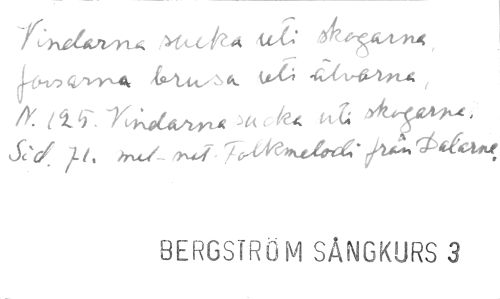 Vindarna sucka uti skogarna,
forsarna brusa uti älvarna,
N. 125. Vindarna sucka uti skogarna.
Sid. 71. mel-not. Folkmelodi från Dalarne.
BERGSTRÖM SÅNGKURS 3